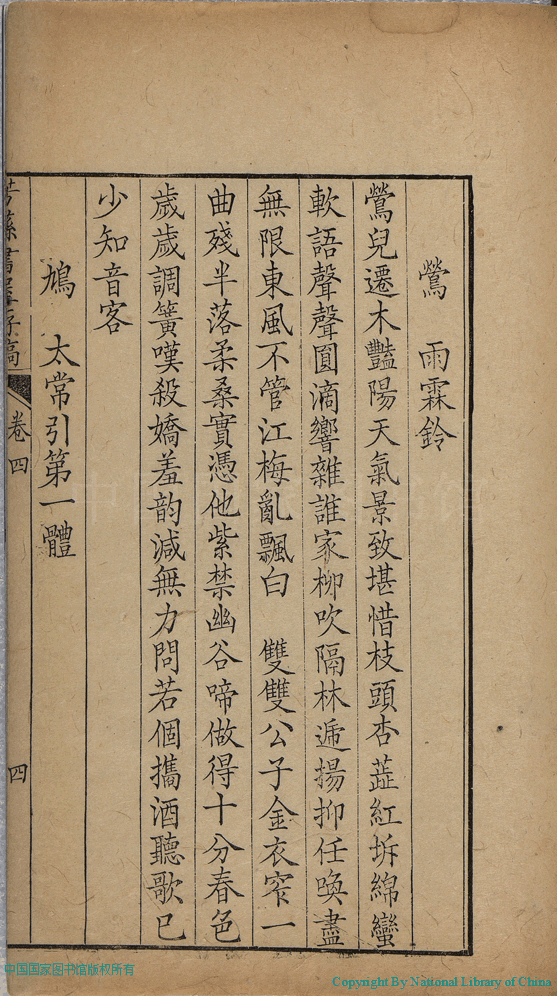 鶯　雨霖鈴
鶯兒遷木豔陽天氣景致堪惜枝頭杏蕋紅坼綿蠻
軟語聲聲圓滴響雜誰家柳吹隔林遞揚抑任喚盡
無限東風不管江梅亂飄白　雙雙公子金衣窄一
曲殘半落柔桑實憑他紫禁幽谷啼做得十分春色
歲歲調簧嘆殺嬌羞韵減無力問若個攜酒聽歌已
少知音客
鳩　太常引第一體
卷四
四
中国国家图书馆版权所有
Copyright By National Library of China